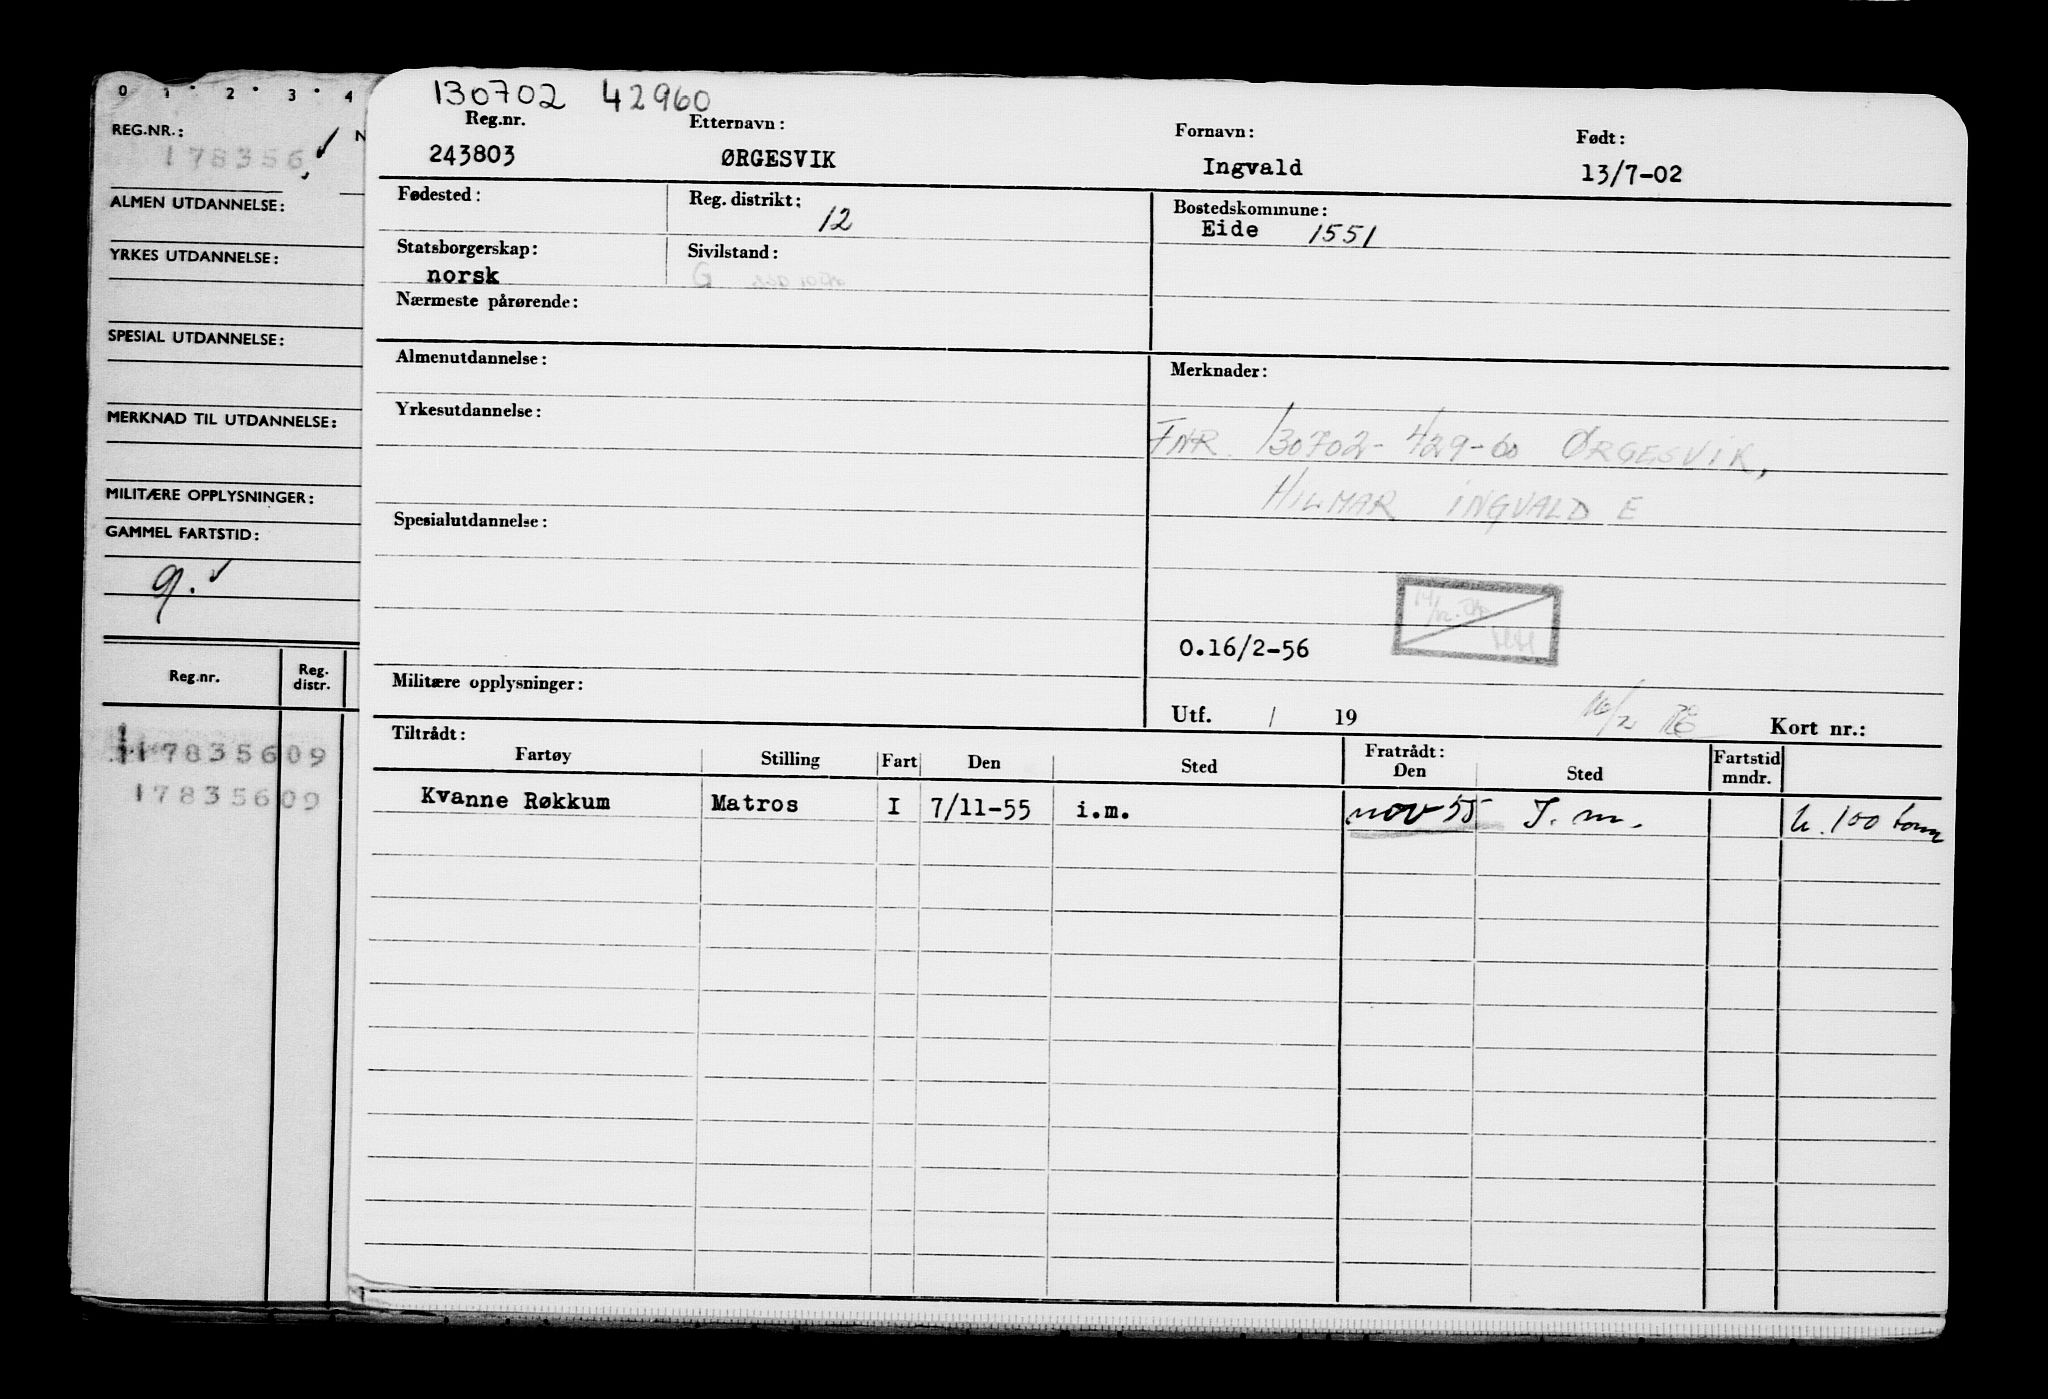 0 1 2 3 4
REG.NR.:
178356
ALMEN UTDANNELSE:
YRKES UTDANNELSE:
SPESIAL UTDANNELSE:
MERKNAD TIL UTDANNELSE:
MILITÆRE OPPLYSNINGER:
GAMMEL FARTSTID:
9.
Reg.nr. Reg. distr.
17835609
17835609
130702 42960
Reg.nr. Etternavn: Fornavn: Født:
243803 ØRGESVIK Ingvald 13/7-02
Fødested: Reg. distrikt: 12 Bostedskommune:
Eide 1551
Statsborgerskap: Sivilstand:
norsk G
Nærmeste pårørende:
Almenutdannelse: Merknader:
Yrkesutdannelse:
FNR 130702-429-60 ØRGESVIK,
HILMAR INGVALD E
Spesialutdannelse:
O.16/2-56
Militære opplysninger:
Utf. / 19 16/2 Kort nr.:
Tiltrådt: Fratrådt:
Fartøy Stilling Fart Den Sted Den Sted Fartstid mndr.
Kvanne Røkkum Matros I 7/11-55 i.m. nov 55 I.m. u. 100 tonn